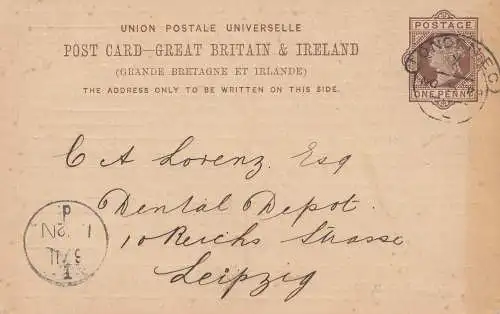 UNION POSTALE UNIVERSELLE
POST CARD—GREAT BRITAIN & IRELAND
(GRANDE BRETAGNE ET IRLANDE)
THE ADDRESS ONLY TO BE WRITTEN ON THIS SIDE.
POSTAGE
ONE PENNY
LONDON E.C.
C A Lorenz. Esq
Dental Depot.
10 Reichs Strasse
Leipzig